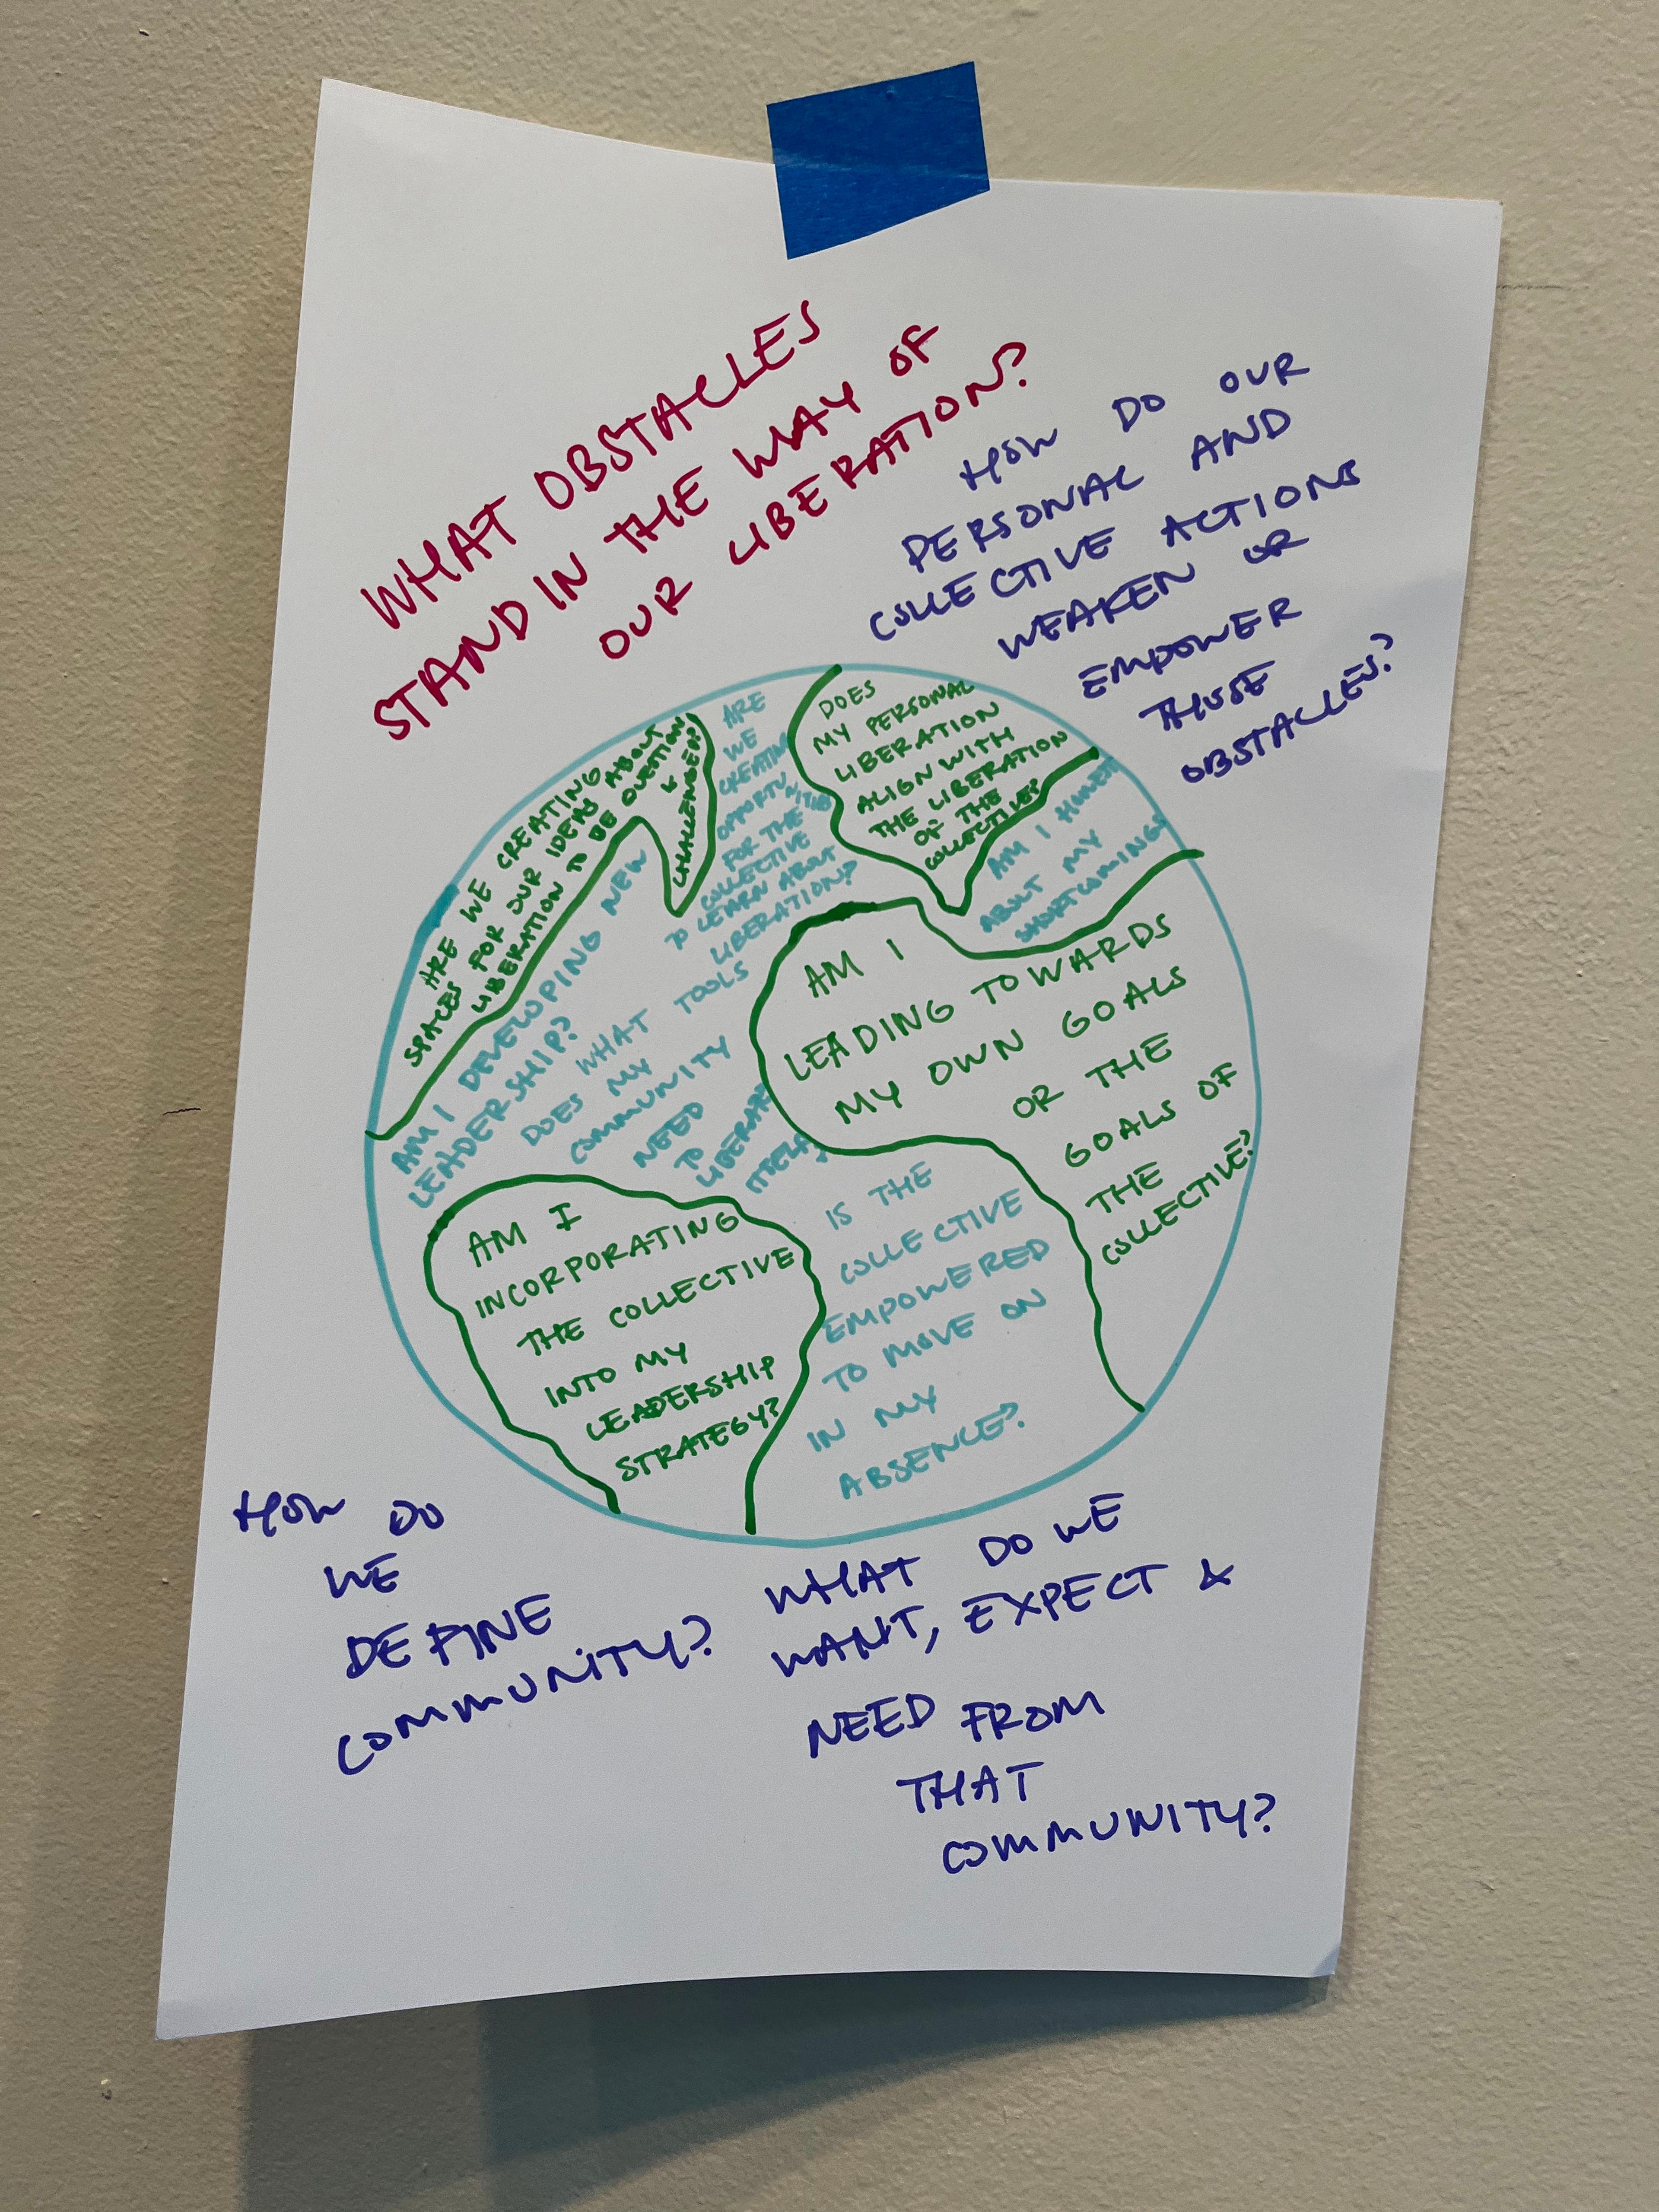 WHAT OBSTACLES
STAND IN THE WAY OF
OUR LIBERATION?
HOW DO OUR
PERSONAL AND
COLLECTIVE ACTIONS
WEAKEN OR
EMPOWER
THOSE
OBSTACLES?
ARE WE CREATING
SPACES FOR OUR IDEAS ABOUT
LIBERATION TO BE QUESTIONED
&
CHALLENGED?
ARE
WE
CREATING
OPPORTUNITIES
FOR THE
COLLECTIVE
TO LEARN ABOUT
LIBERATION?
DOES
MY PERSONAL
LIBERATION
ALIGN WITH
THE LIBERATION
OF THE
COLLECTIVE?
AM I HONEST
ABOUT MY
SHORTCOMINGS?
AM I DEVELOPING NEW
LEADERSHIP?
WHAT TOOLS
DOES MY
COMMUNITY
NEED
TO
LIBERATE
ITSELF?
AM I
LEADING TOWARDS
MY OWN GOALS
OR THE
GOALS OF
THE
COLLECTIVE?
AM I
INCORPORATING
THE COLLECTIVE
INTO MY
LEADERSHIP
STRATEGY?
IS THE
COLLECTIVE
EMPOWERED
TO MOVE ON
IN MY
ABSENCE?
HOW DO
WE
DEFINE
COMMUNITY?
WHAT DO WE
WANT, EXPECT &
NEED FROM
THAT
COMMUNITY?